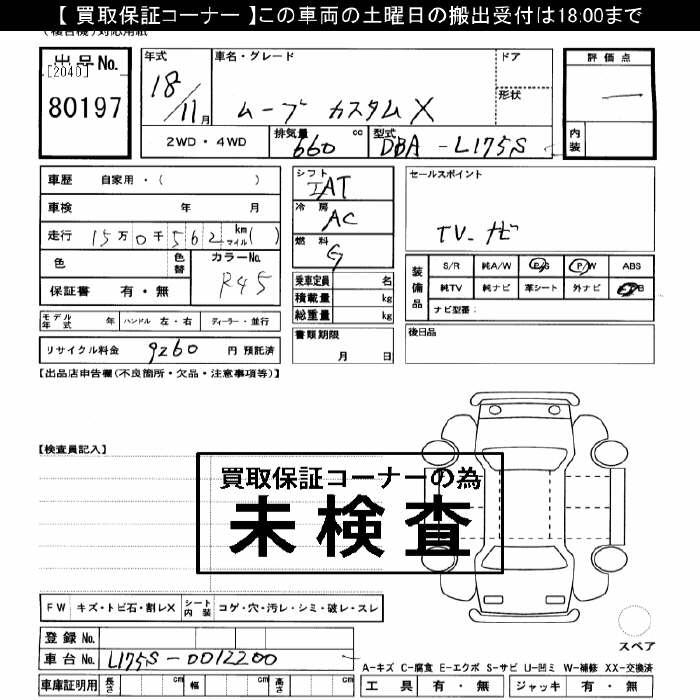 【 買取保証コーナー 】この車両の土曜日の搬出受付は18:00まで
出品No.
[2040]
80197
年式
18/11月
車名・グレード
ムーブ カスタムX
ドア
形状
評価点
—
内装
2WD・4WD
排気量 660 cc
型式 DBA-L175S
車歴 自家用・( )
車検 年 月
走行 15万0千562 km マイル( )
色
色替
カラーNo.
R45
保証書 有・無
シフト
IAT
冷房
AC
燃料
G
乗車定員 名
積載量 kg
総重量 kg
セールスポイント
TV-ナビ
装備品
S/R 純A/W P/S P/W ABS
純TV 純ナビ 革シート 外ナビ
ナビ型番:
モデル年式 年 ハンドル 左・右 ディーラー・並行
リサイクル料金 9260 円 預託済
書類期限
月 日
後日品
【出品店申告欄(不良箇所・欠品・注意事項等)】
【検査員記入】
買取保証コーナーの為
未検査
FW キズ・トビ石・割レX シート内装 コゲ・穴・汚レ・シミ・破レ・スレ
スペア
登録No.
車台No. L175S-0012200
A-キズ C-腐食 E-エクボ S-サビ U-凹ミ W-補修 XX-交換済
車庫証明用 長さ cm 幅 cm 高さ cm
工具 有・無 ジャッキ 有・無